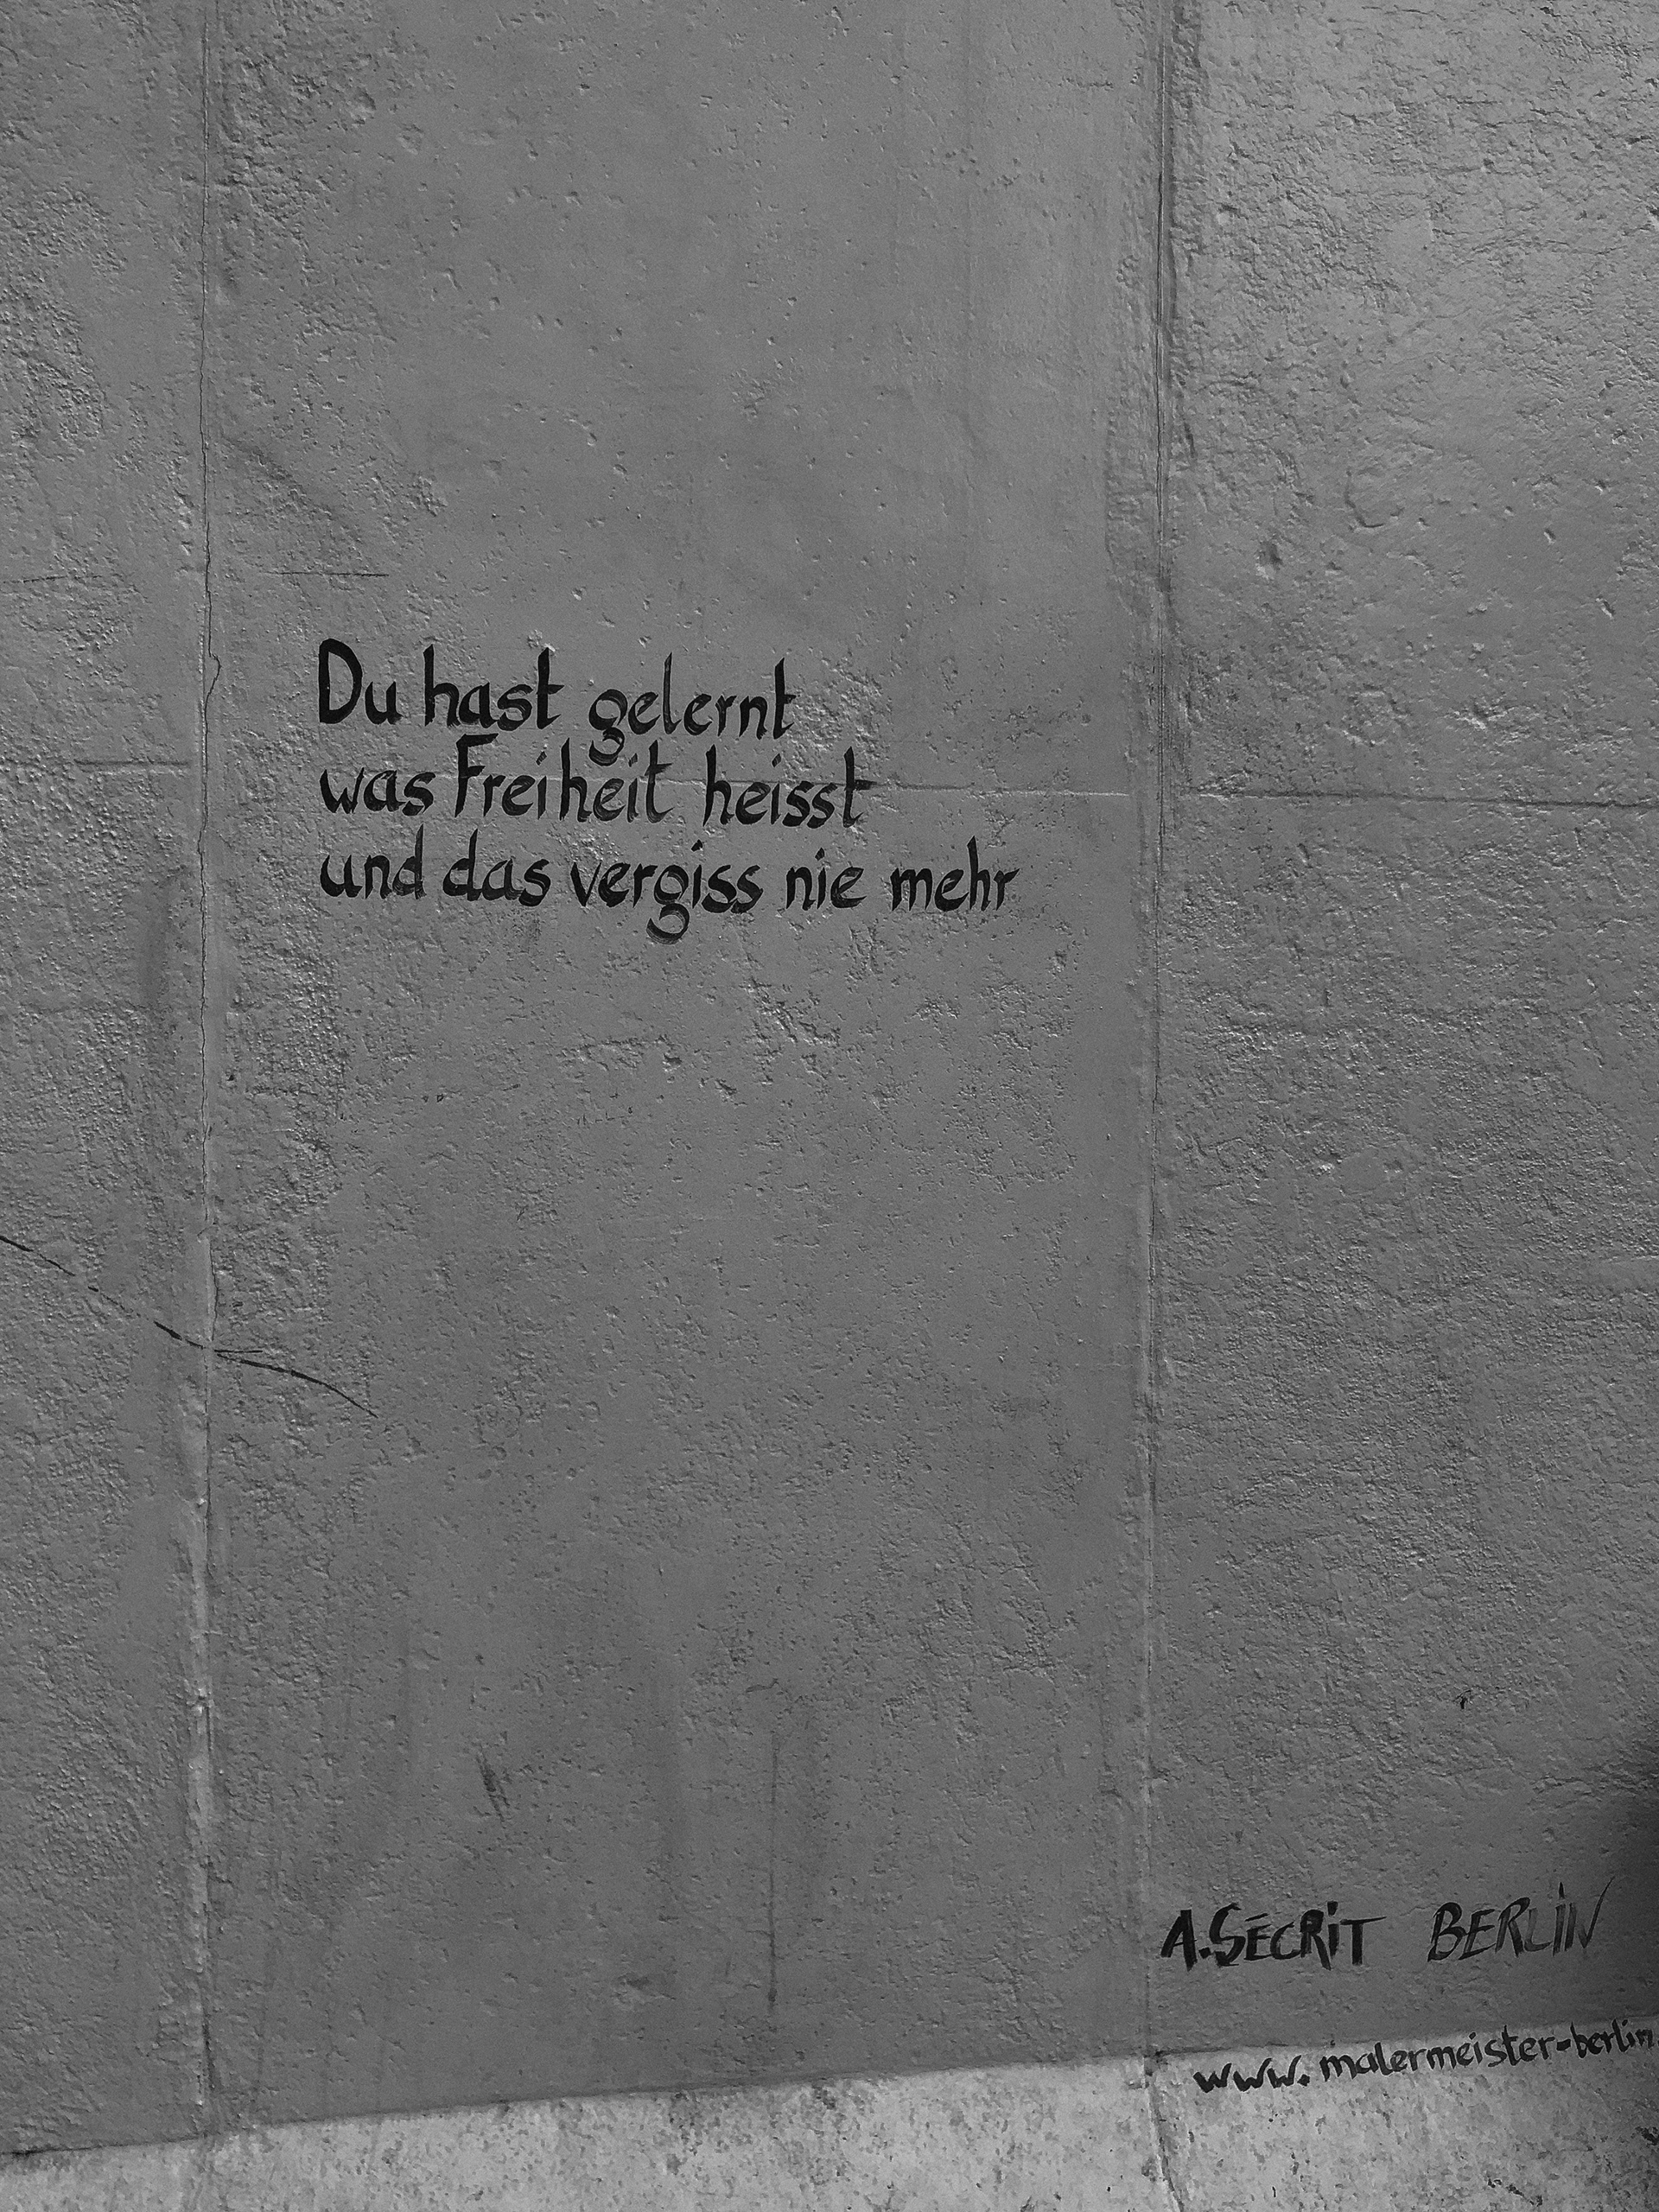 Du hast gelernt
was Freiheit heisst
und das vergiss nie mehr
A.SÉCRIT BERLIN
www.malermeister-berlin.